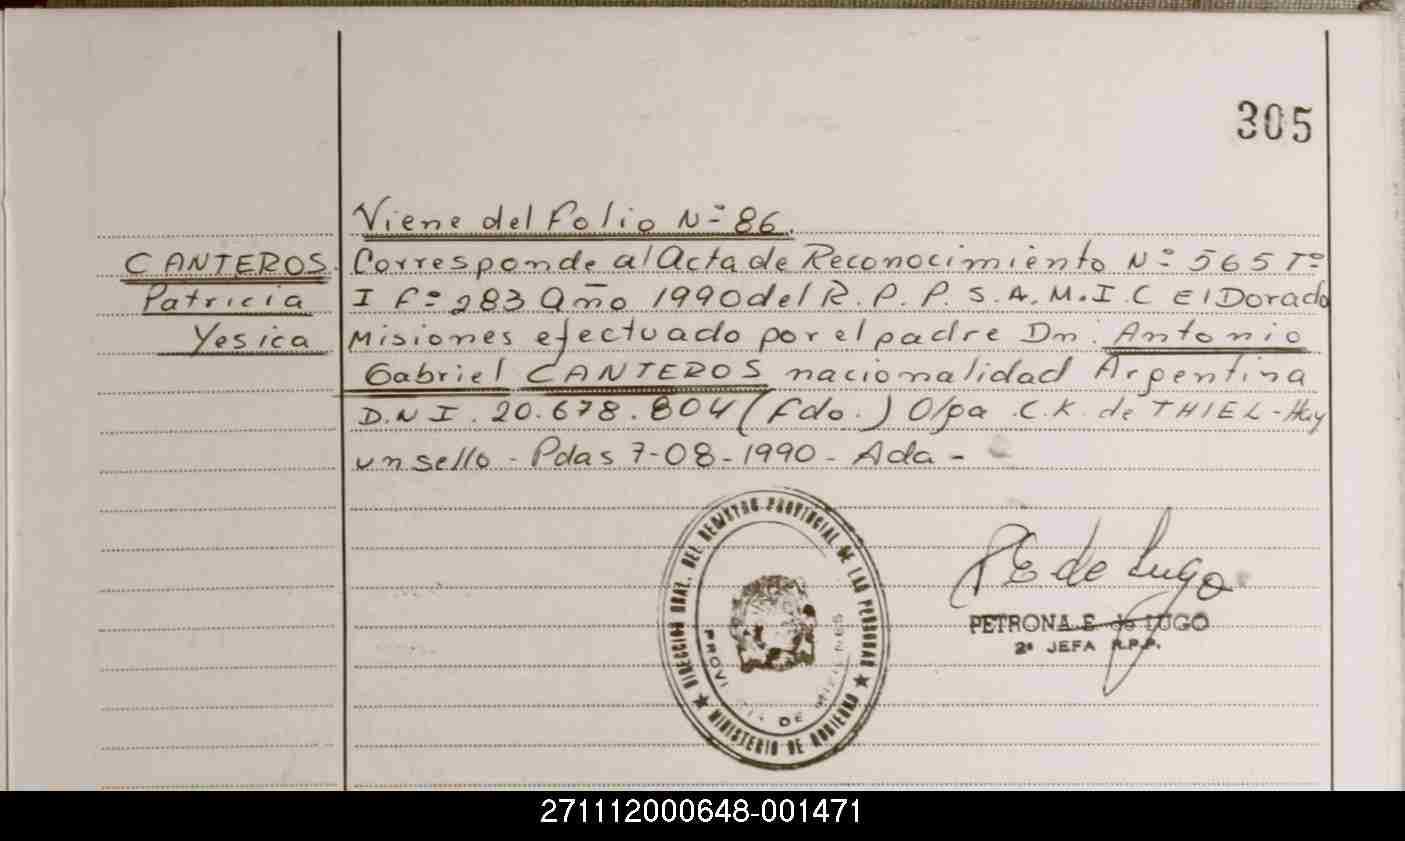 305
Viene del Folio Nº 86.
CANTEROS Corresponde al Acta de Reconocimiento Nº 565 Tº
Patricia I Fº 283 Año 1990 del R.P.P. S.A.M.I.C El Dorado
Yesica Misiones efectuado por el padre Dn. Antonio
Gabriel CANTEROS nacionalidad Argentina
D.N I. 20.678.804 (Fdo.) Olga C.K. de THIEL - Hay
un sello - Pdas 7-08-1990 - Ada -
DIRECCION GRAL. DEL REGISTRO PROVINCIAL DE LAS PERSONAS
PROVINCIA DE MISIONES
MINISTERIO DE GOBIERNO
P E de Lugo
PETRONA E. de LUGO
2ª JEFA R.P.P.
271112000648-001471